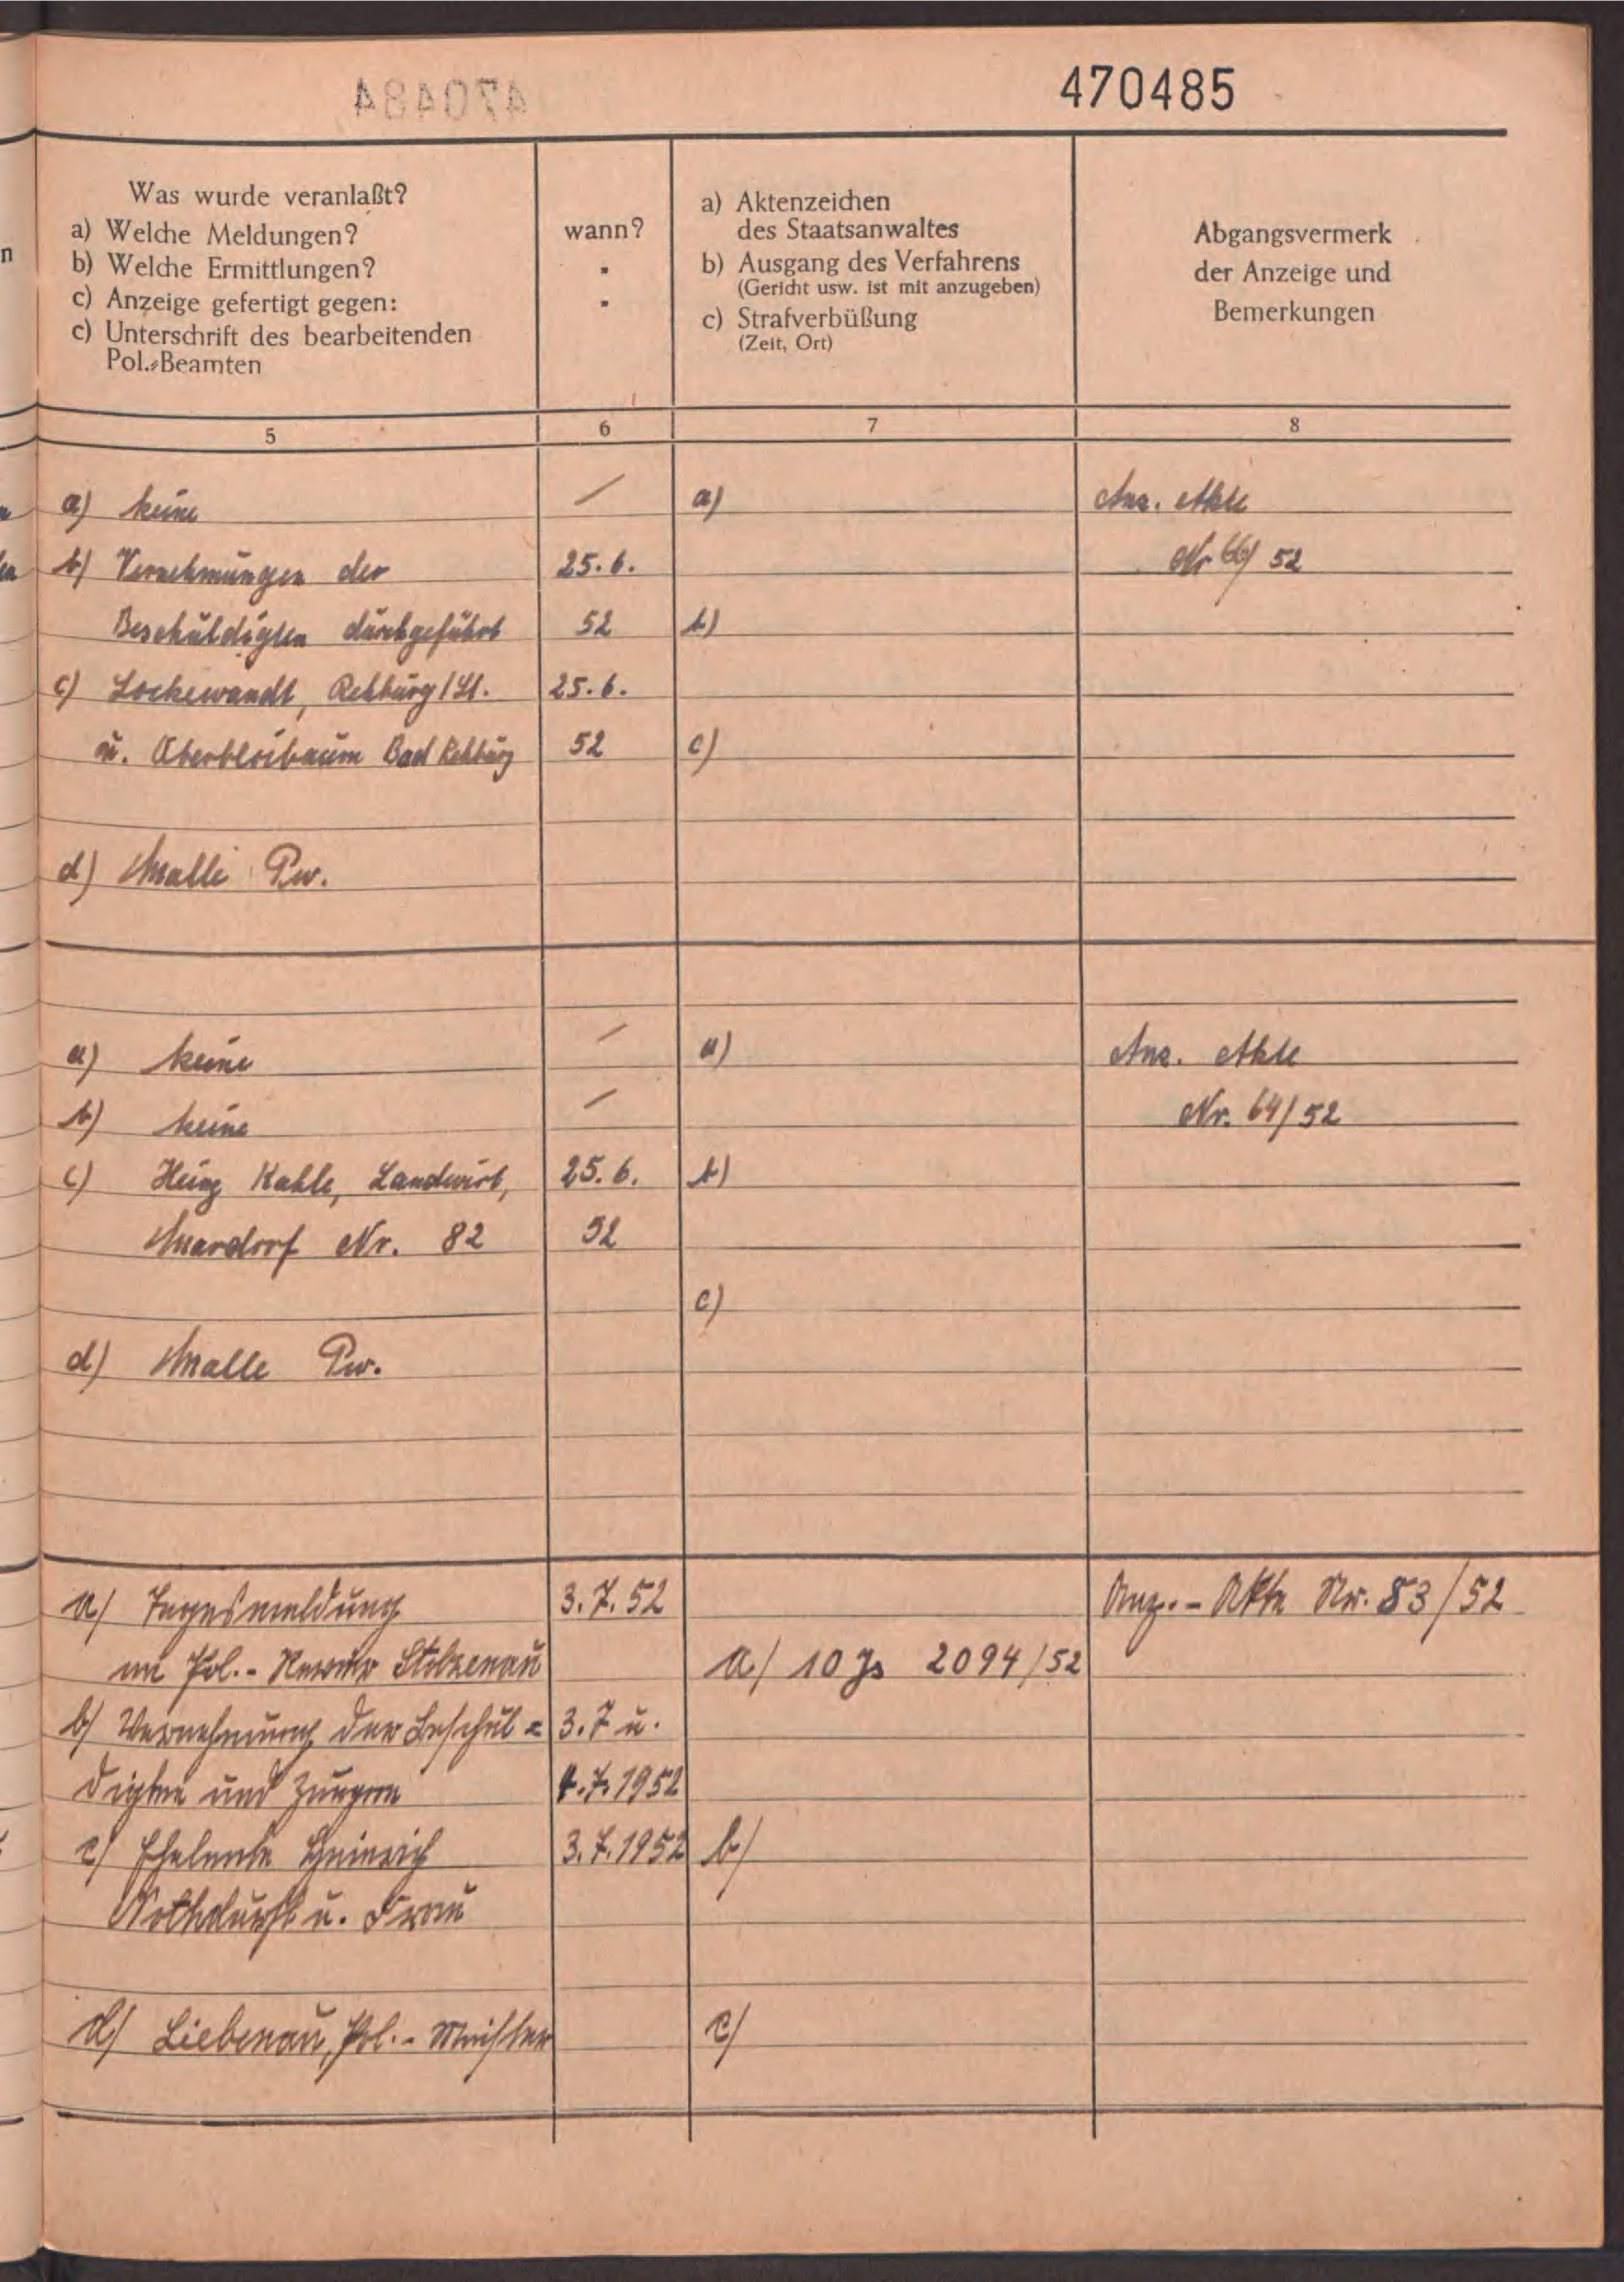 470484
470485
Was wurde veranlaßt?
a) Welche Meldungen?
b) Welche Ermittlungen?
c) Anzeige gefertigt gegen:
c) Unterschrift des bearbeitenden
Pol.-Beamten
wann?
a) Aktenzeichen
des Staatsanwaltes
b) Ausgang des Verfahrens
(Gericht usw. ist mit anzugeben)
c) Strafverbüßung
(Zeit, Ort)
Abgangsvermerk
der Anzeige und
Bemerkungen
5 6 7 8
a) keine / a) Anz. Akte
b) Vernehmungen der 25.6. Nr 66/52
Beschuldigten durchgeführt 52 b)
c) Lockewandt, Rehburg/St. 25.6.
u. Oberbloibaum Bad Rehburg 52 c)
d) Malle Pw.
a) keine / a) Anz. Akte
b) keine / Nr. 64/52
c) Heinz Kahle, Landwirt, 25.6. b)
Mardorf Nr. 82 52
c)
d) Malle Pw.
a/ Tagesmeldung 3.7.52 Anz.-Akte Nr. 83/52
an Pol.-Revier Stolzenau a/ 10 Js 2094/52
b/ Vernehmung der Beschul= 3.7 u.
digten und Zeugen 4.7.1952
c/ Eheleute Heinrich 3.7.1952 b/
Nothdurft u. Frau
d/ Liebenau, Pol.-Meister c/